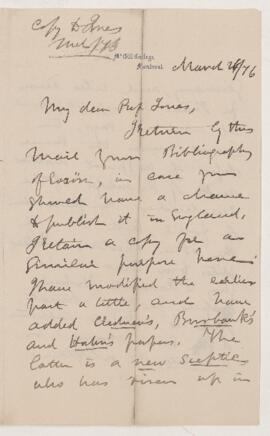 Copy to Jones
McGill College,
Montreal
March 26/76
My dear Prof Jones,
I return by this
Mail your Bibliography
of Eozoön, in case you
should have a chance
to publish it in England.
I retain a copy for a
similar purpose here.
I have modified the earlier
part a little, and have
added Credner's, Burbank's
and Hahn's papers. The
latter is a new sceptic
who has risen up in